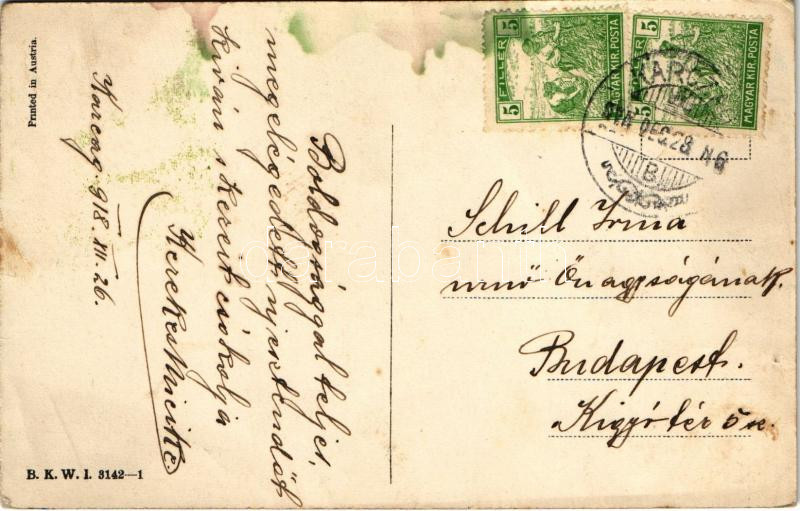 Printed in Austria.
Karcag 918. XII. 26.
Boldogsággal teljes,
megelégedett ujesztendőt
kiván s kezeit csókolja
Kerekes Micike.
B. K. W. I. 3142—1
5 FILLÉR 5
MAGYAR KIR. POSTA
5 FILLÉR 5
MAGYAR KIR. POSTA
KARCAG
DEC. 28. N 6
B
Schill Irma
urnő Őnagyságának.
Budapest.
Kigyó tér 5 sz.
darabanth